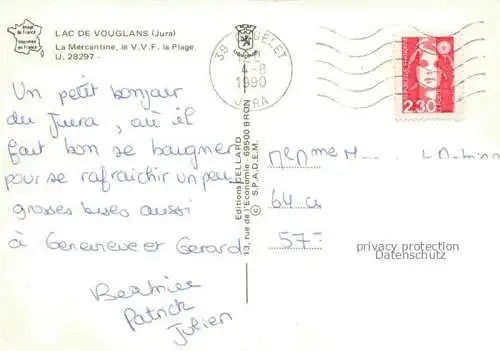 Image de France
Imprimée en France
LAC DE VOUGLANS (Jura)
La Mercantine, le V.V.F. la Plage.
U. 28297 -
39 ORGELET
4-8
1990
JURA
2,30
Un petit bonjour
du Jura, où il
fait bon se baigner
pour se rafraichir un peu
grosses bises aussi
à Geneviève et Gérard
Béatrice
Patrick
Julien
Editions CELLARD
13, rue de l'Economie - 69500 BRON
© S.P.A.D.E.M.
64
57
privacy protection
Datenschutz